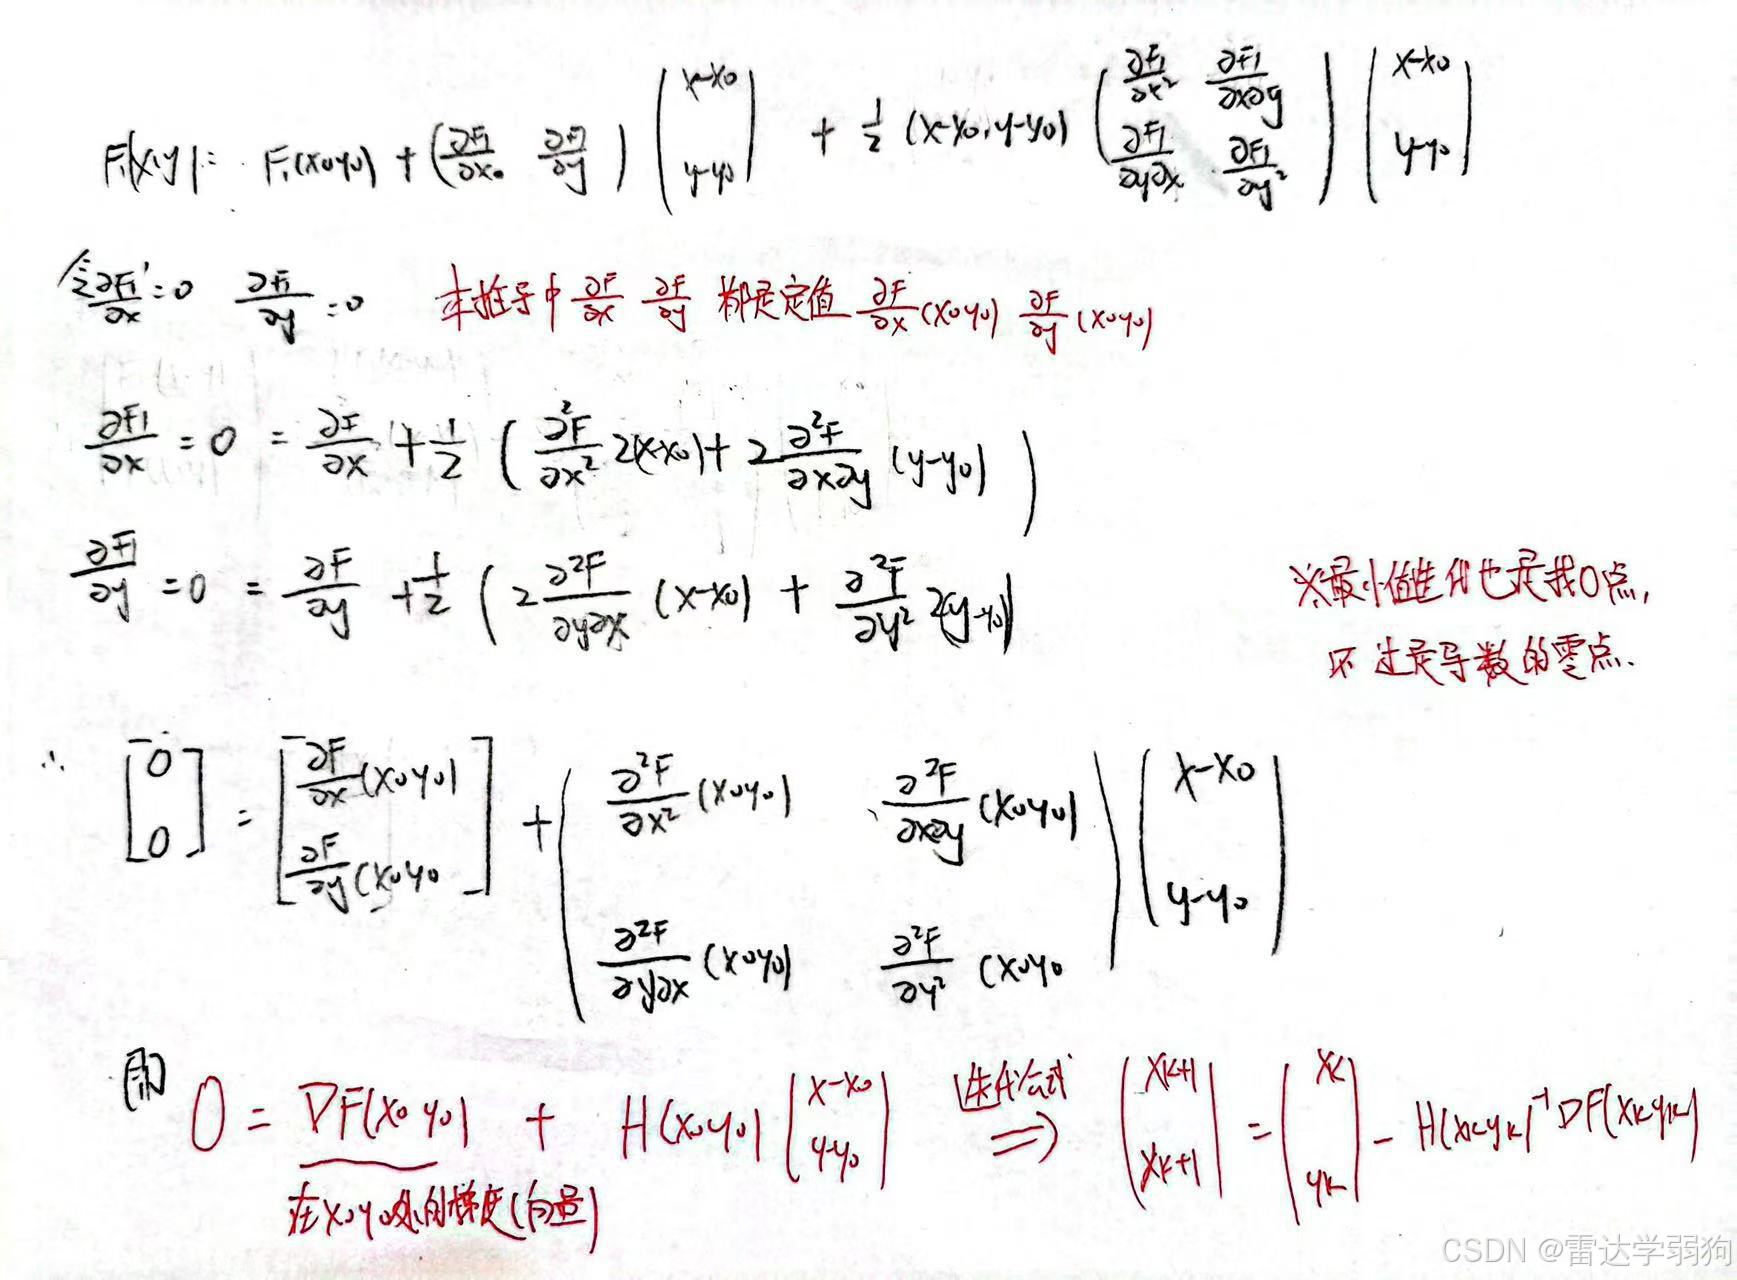 F₁(x,y)= F₁(x₀y₀) + (∂F₁/∂x₀ ∂F₁/∂y) (x-x₀ y-y₀) + 1/2 (x-x₀,y-y₀) (∂F₁/∂x² ∂F₁/∂x∂y ∂F₁/∂y∂x ∂F₁/∂y²) (x-x₀ y-y₀)
令∂F₁/∂x=0 ∂F₁/∂y=0 本推导中 ∂F/∂x ∂F/∂y 都是定值 ∂F/∂x(x₀y₀) ∂F/∂y(x₀y₀)
∂F₁/∂x = 0 = ∂F/∂x + 1/2 (∂²F/∂x² 2(x-x₀) + 2 ∂²F/∂x∂y (y-y₀))
∂F₁/∂y = 0 = ∂F/∂y + 1/2 (2 ∂²F/∂y∂x (x-x₀) + ∂²F/∂y² 2(y-y₀))
※最小值迭代也是找0点,
不过是导数的零点.
∴ [0 0] = [∂F/∂x(x₀y₀) ∂F/∂y(x₀y₀] + (∂²F/∂x²(x₀y₀) ∂²F/∂x∂y(x₀y₀) ∂²F/∂y∂x(x₀y₀) ∂²F/∂y²(x₀y₀) (x-x₀ y-y₀)
即 0 = DF(x₀y₀) + H(x₀y₀) (x-x₀ y-y₀) 迭代公式 ⇒ (xk+1 xk+1) = (xk yk) - H(xkyk)⁻¹DF(xkyk)
在x₀y₀处的梯度(向量)
CSDN @雷达学弱狗